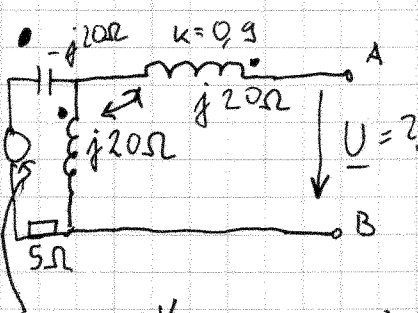 -j20Ω k=0,9 A
j20Ω
j20Ω U=?
B
5Ω